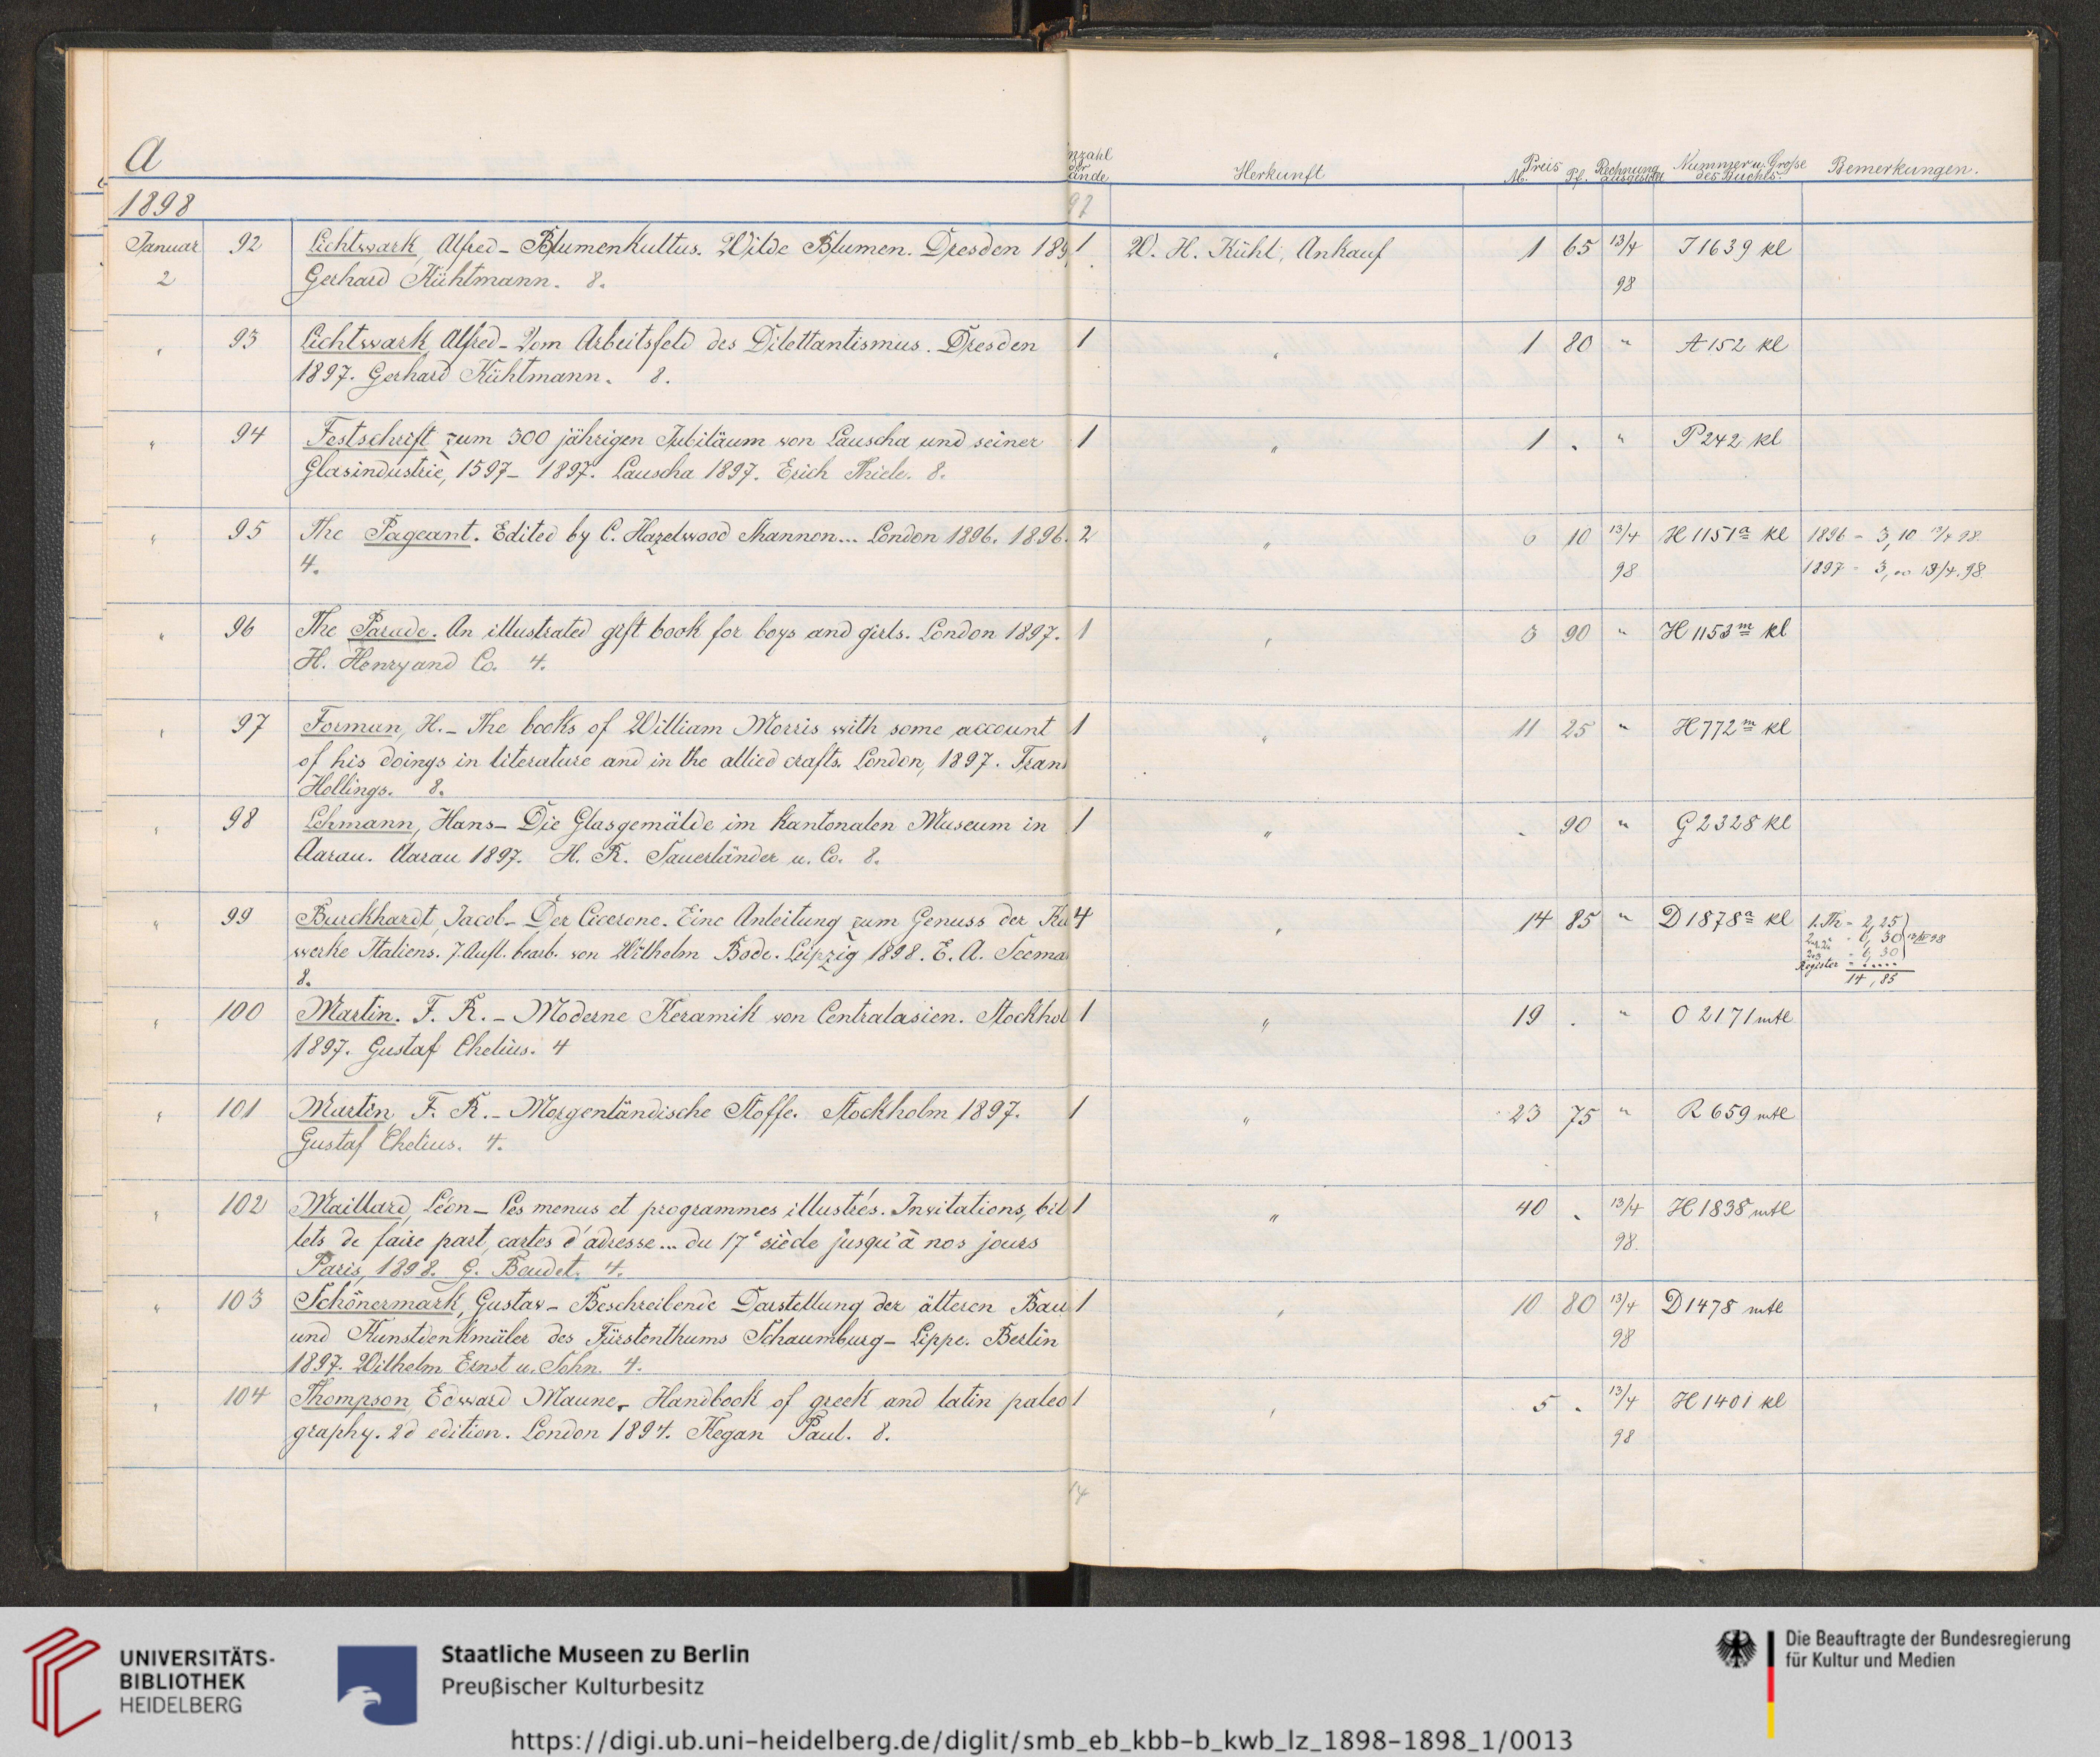 A
Anzahl der Bände Herkunft Preis M. Pf. Rechnung ausgestellt Nummer u. Grösse des Buchs. Bemerkungen.
1898 92
Januar 92 Lichtwark, Alfred - Blumenkultus. Wilde Blumen. Dresden 189 1 W. H. Kühl, Ankauf 1 65 13/4 J 1639 kl
2 Gerhard Kühtmann. 8. 98
" 93 Lichtwark Alfred - Vom Arbeitsfeld des Dilettantismus. Dresden 1 " 1 80 " A 152 kl
1897. Gerhard Kühtmann. 8.
" 94 Festschrift zum 300 jährigen Jubiläum von Lauscha und seiner 1 " 1 . " P 242 kl
Glasindustrie, 1597 - 1897. Lauscha 1897. Erich Thiele. 8.
" 95 The Pageant. Edited by C. Hazelwood Shannon... London 1896. 1896. 2 " 6 10 13/4 H 1151a kl 1896 - 3,10 13/4 98.
4. 98 1897 - 3,00 13/4. 98.
" 96 The Parade. An illustrated gift book for boys and girls. London 1897. 1 " 3 90 " H 1153m kl
H. Henry and Co. 4.
" 97 Forman, H. - The books of William Morris with some account 1 " 11 25 " H 772m kl
of his doings in literature and in the allied crafts. London, 1897. Frank
Hollings. 8.
" 98 Lehmann, Hans - Die Glasgemälde im kantonalen Museum in 1 " - 90 " G 2328 kl
Aarau. Aarau 1897. H. R. Sauerländer u. Co. 8.
" 99 Burckhardt, Jacob - Der Cicerone. Eine Anleitung zum Genuss der Ku 4 " 14 85 " D 1878a kl 1. Th - 2,25
werke Italiens. 7. Aufl. bearb. von Wilhelm Bode. Leipzig 1898. E. A. Seema 6,30 13/IV 98
8. 6,30
Register
14,85
" 100 Martin. F. R. - Moderne Keramik von Centralasien. Stockhol 1 " 19 . " O 2171 mtl
1897. Gustaf Chelius. 4
" 101 Martin F. R. - Morgenländische Stoffe. Stockholm 1897. 1 " 23 75 " R 659 mtl
Gustaf Chelius. 4.
" 102 Maillard, Léon - Les menus et programmes illustrés. Invitations, bil 1 " 40 . 13/4 H 1838 mtl
lets de faire part, cartes d'adresse... du 17e siècle jusqu'à nos jours 98.
Paris, 1898. G. Boudet. 4.
" 103 Schönermark, Gustav - Beschreibende Darstellung der älteren Bau 1 " 10 80 13/4 D 1478 mtl
und Kunstdenkmäler des Fürstenthums Schaumburg - Lippe. Berlin 98
1897. Wilhelm Ernst u. Sohn. 4.
" 104 Thompson, Edward Maune - Handbook of greek and latin paleo 1 " 5 . 13/4 H 1401 kl
graphy. 2d edition. London 1894. Kegan Paul. 8. 98
14
UNIVERSITÄTS-
BIBLIOTHEK
HEIDELBERG
Staatliche Museen zu Berlin
Preußischer Kulturbesitz
Die Beauftragte der Bundesregierung
für Kultur und Medien
https://digi.ub.uni-heidelberg.de/diglit/smb_eb_kbb-b_kwb_lz_1898-1898_1/0013